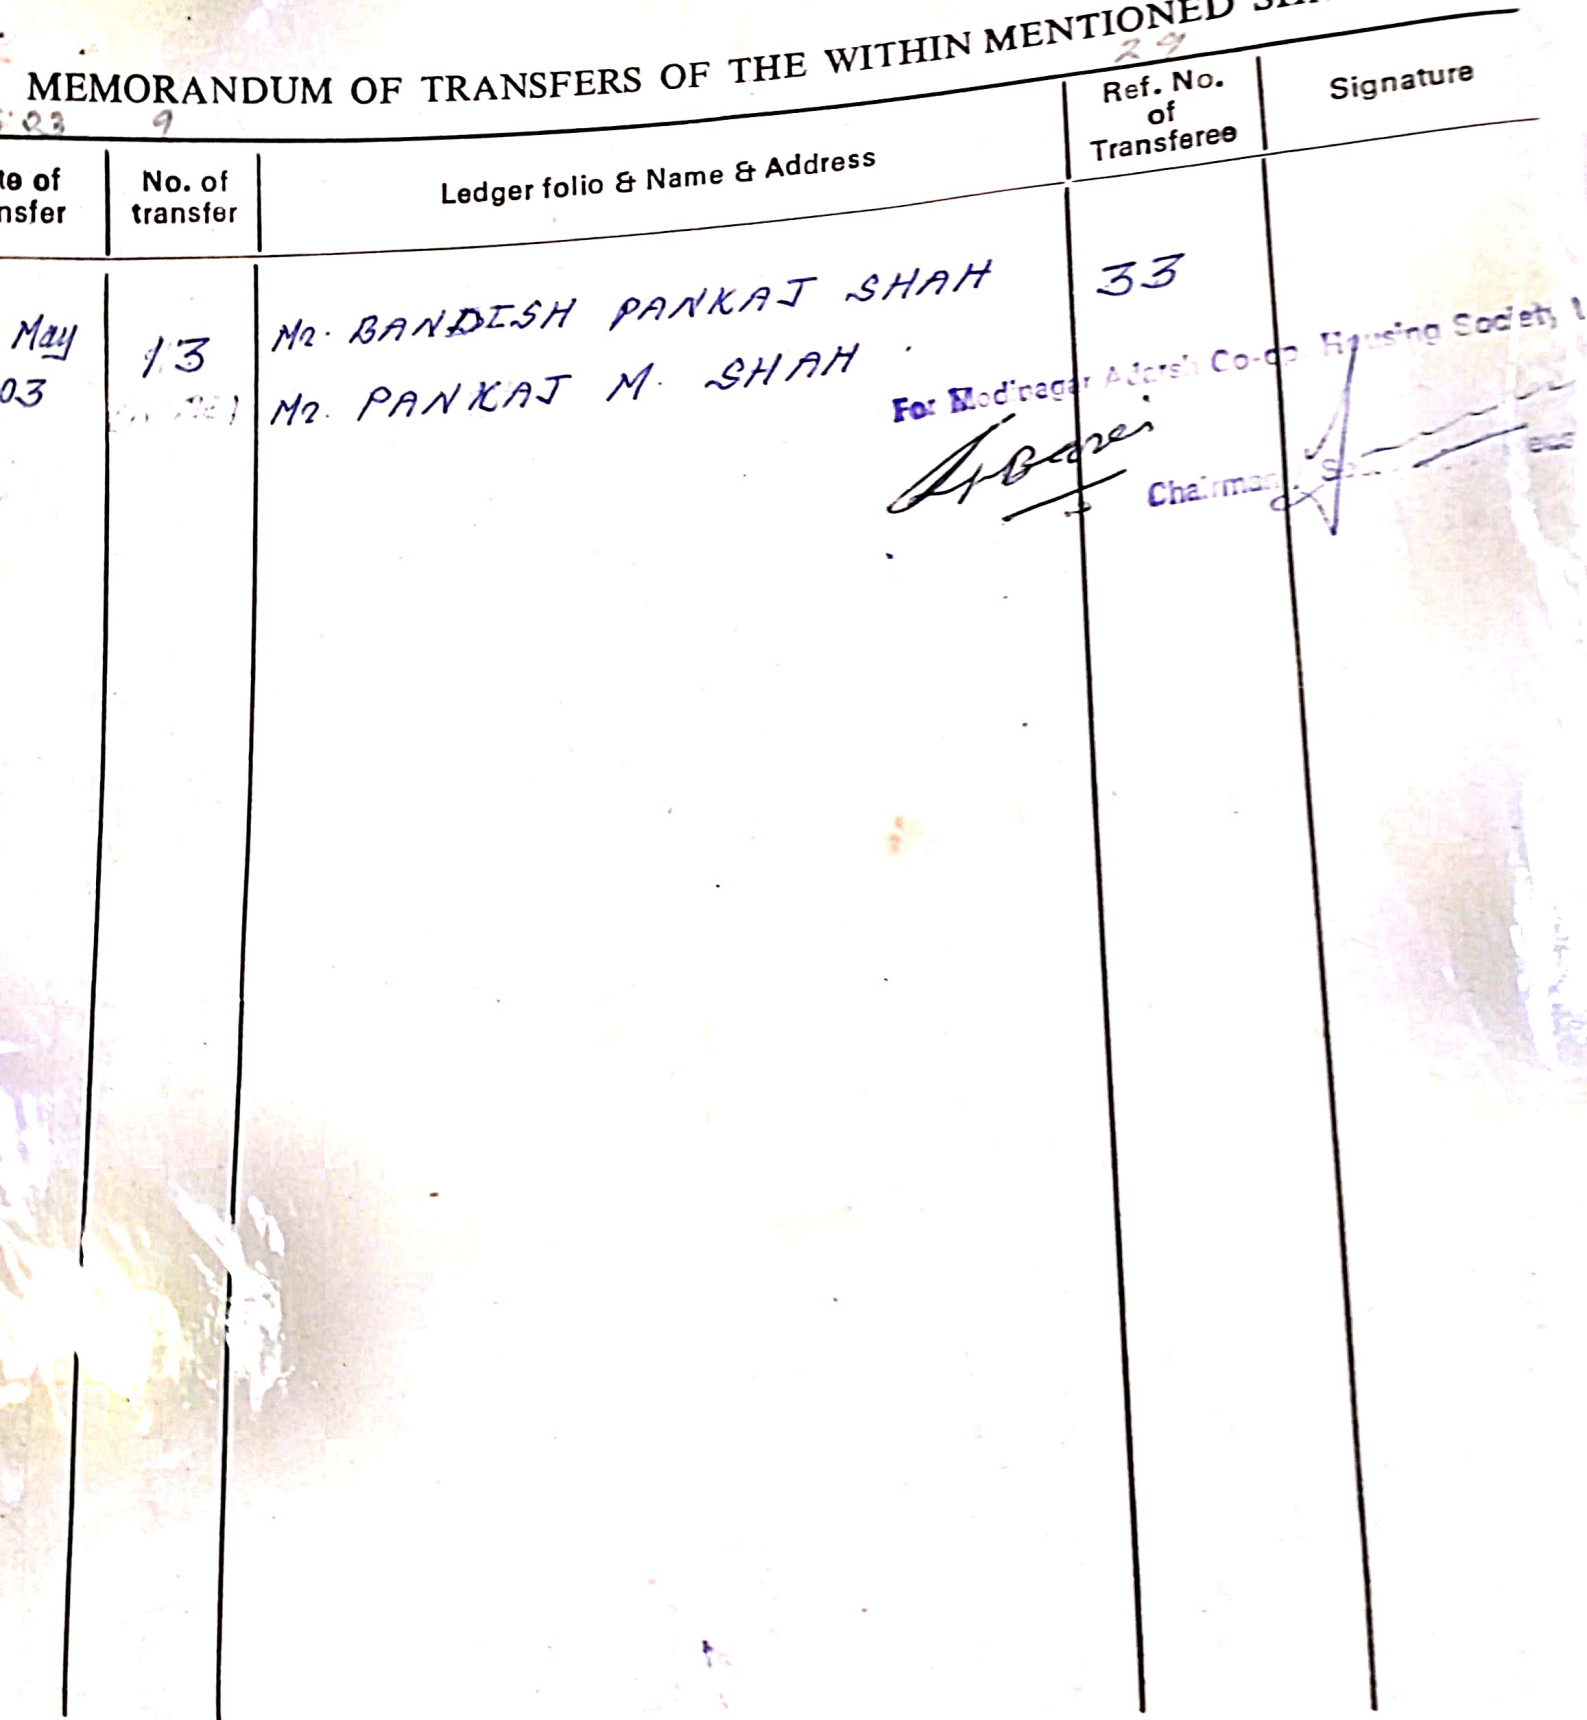 MEMORANDUM OF TRANSFERS OF THE WITHIN MENTIONED
29
23 9
te of
nsfer
No. of
transfer
Ledger folio & Name & Address
Ref. No.
of
Transferee
Signature
May
03
13
Mr. BANDISH PANKAJ SHAH
Mr. PANKAJ M. SHAH
33
For Modinagar Adarsh Co-op. Housing Society
Chairman